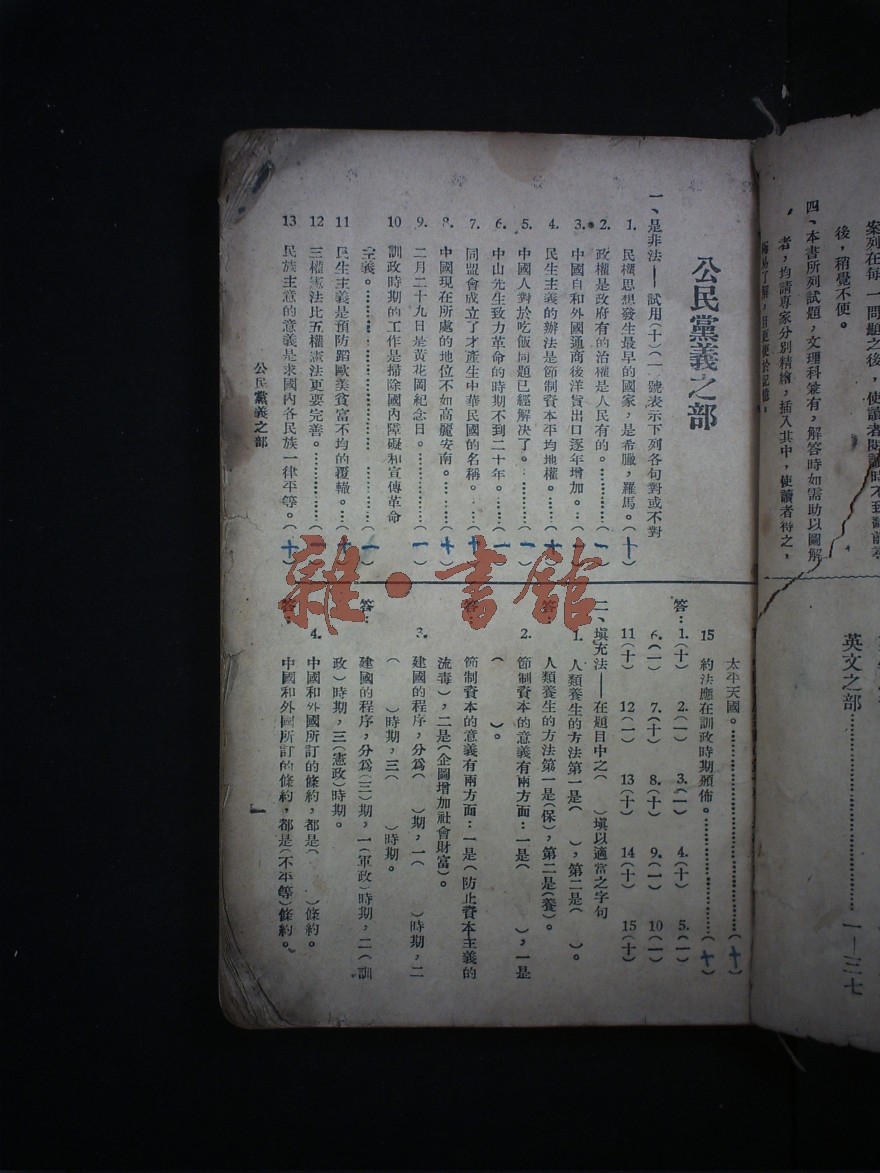 案列在每一問題之後，使讀者閱讀時不到翻前尋
後，稍覺不便。
四、本書所列試題，文理科兼有，解答時如需助以圖解
者，均請專家分別精繪，插入其中，使讀者得之，
易了解，且更便於記憶。
英文之部…………一—三七
公民黨義之部
一、是非法——試用(十)(一)號表示下列各句對或不對
1. 民權思想發生最早的國家，是希臘，羅馬。(十)
2. 政權是政府有的治權是人民有的。……(一)
3. 中國自和外國通商後洋貨出口逐年增加。…(一)
4. 民生主義的辦法是節制資本平均地權。……(十)
5. 中國人對於吃飯問題已經解決了。………(一)
6. 中山先生致力革命的時期不到二十年。……(一)
7. 同盟會成立了才產生中華民國的名稱。……(十)
8. 中國現在所處的地位不如高麗安南。………(十)
9. 二月二十九日是黃花岡紀念日。…………(一)
10 訓政時期的工作是掃除國內障礙和宣傳革命
主義。……………………(一)
11 民生主義是預防蹈歐美貧富不均的覆轍。…(十)
12 三權憲法比五權憲法更要完善。…………(一)
13 民族主意的意義是求國內各民族一律平等。(十)
公民黨義之部
太平天國。……………………(十)
15 約法應在訓政時期頒佈。………………(十)
答：1.(十) 2.(一) 3.(一) 4.(十) 5.(一)
6.(一) 7.(十) 8.(十) 9.(一) 10(一)
11(十) 12(一) 13(十) 14(十) 15(十)
二、填充法——在題目中之( )填以適當之字句
1. 人類養生的方法第一是( )，第二是( )。
答：人類養生的方法第一是(保)，第二是(養)。
2. 節制資本的意義有兩方面：一是( )，一是
( )。
答：節制資本的意義有兩方面：一是(防止資本主義的
流毒)，二是(企圖增加社會財富)。
3. 建國的程序，分爲( )期，一( )時期，二
( )時期，三( )時期。
答：建國的程序，分爲(三)期，一(軍政)時期，二(訓
政)時期，三(憲政)時期。
4. 中國和外國所訂的條約，都是( )條約。
答：中國和外國所訂的條約，都是(不平等)條約。
一
雜·書館